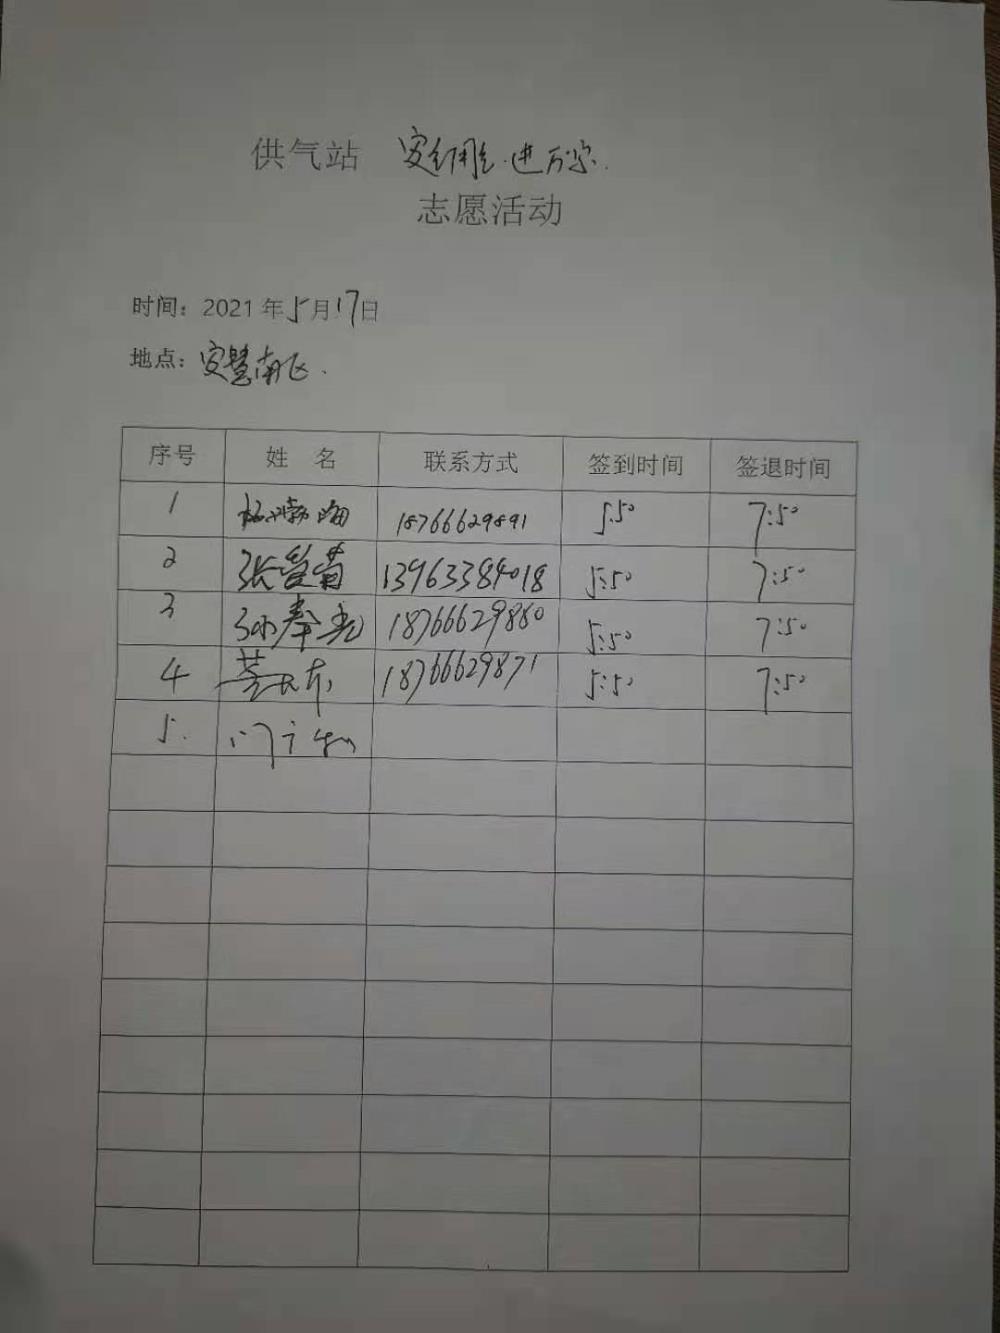 供气站 安全用气 进万家.
志愿活动
时间：2021年5月17日
地点：安慧南区.
序号 姓 名 联系方式 签到时间 签退时间
1 18766629891 5:50 7:50
2 张爱菊 13963384018 5:50 7:50
3 18766629880 5:50 7:50
4 18766629871 5:50 7:50
5.